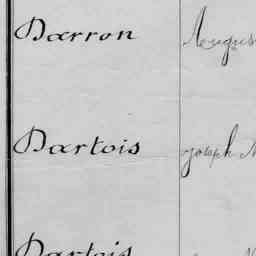 Darron Augus
Dartois Joseph
Dartois